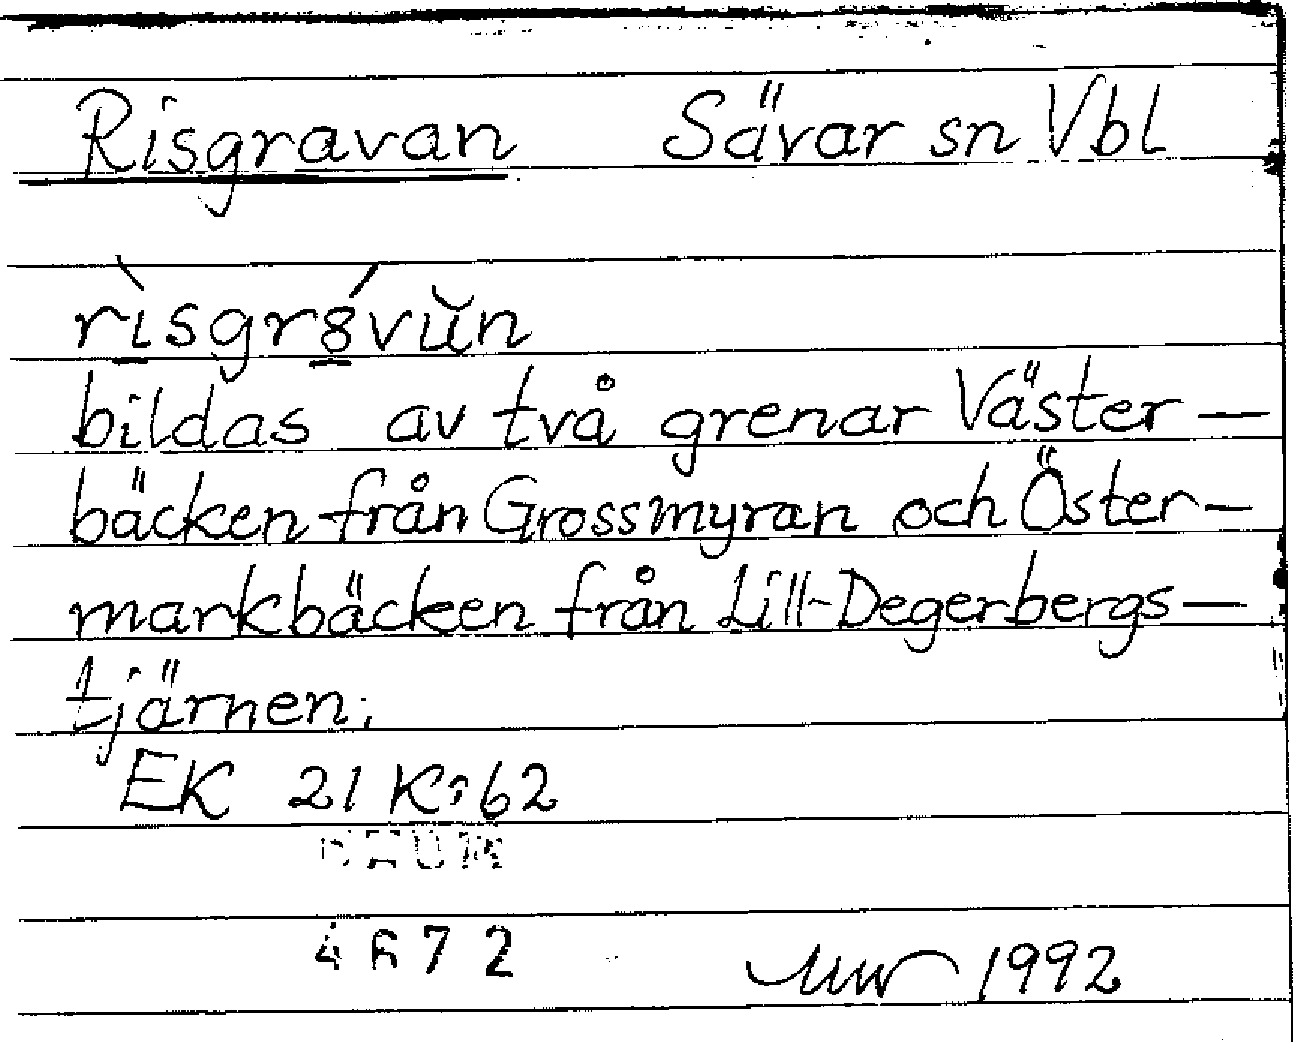 Risgravan Sävar sn Vbl
rìsgr8́vŭn
bildas av två grenar Väster-
bäcken från Grossmyran och Öster-
markbäcken från Lill-Degerbergs-
tjärnen.
EK 21 K:62
DAUM
4672
1992